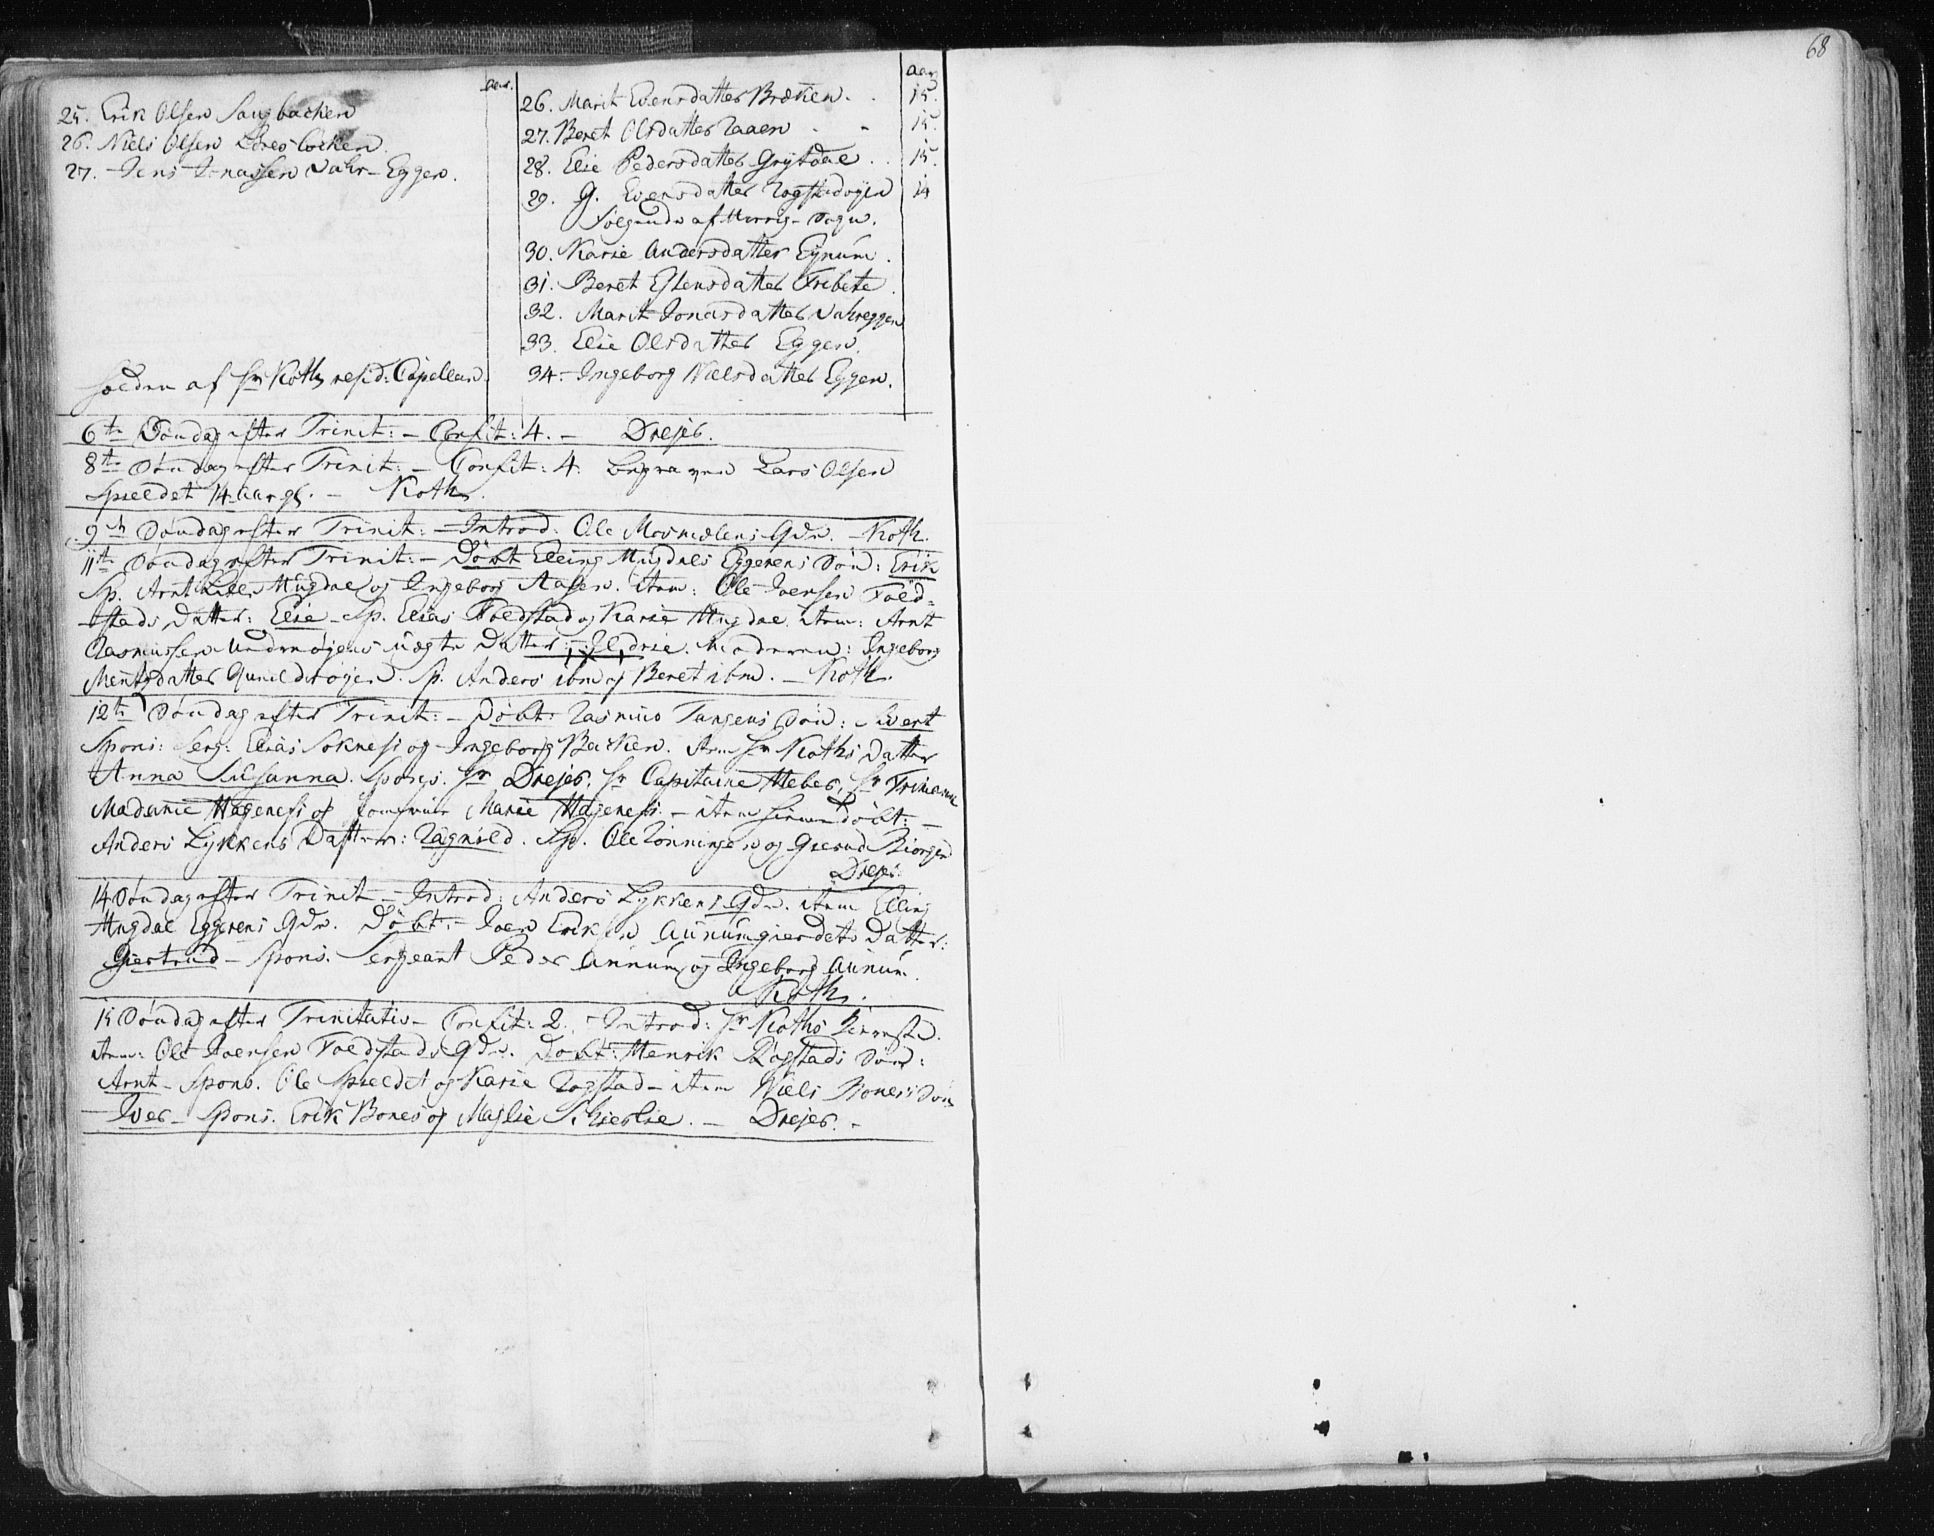 68
aar.
25. Erik Olsen Saugbacken
26. Niels Olsen
27. Jens Jonassen Vahr-Eggen.
holden af hr Roth resid: Capellan
aar
26. Marit Evensdatter Bræken. . 15.
27. Beret Olsdatter Raaen - - 15.
28. Elie Pedersdatter Grytdal . . 15.
29. G. Evensdatter Rogstadøyen 14
Følgende af Sogn.
30. Karie Andersdatter Eynum.
31. Beret Estensdatter Fribete.
32. Marit Jonasdatter Vahreggen
33. Elie Olsdatter Eggen.
34. Ingeborg Nielsdatter Eggen.
6te Søndag efter Trinit: - Confit: 4. - Drejer.
8te Søndag efter Trinit: - Confit: 4. begraven Lars Olsen
Spieldet 14 aar gl. - Roth.
9de Søndag efter Trinit: - Introd: Ole Mosmælens Qde. - Roth.
11te Søndag efter Trinit: - Døbt Elling Hugdals Eggerens Søn: Erik
Sp. Arnt Lille Hugdal og Ingeborg Aasen. item: Ole Joensen Fold-
stads Datter: Elie - Sp. Elias Foldstad og Karie Hugdal. item: Arnt
Rasmussen uægte Datter: Eldrie. Moderen: Ingeborg
Mentsdatter Gunildsøyen. Sp. Anders ibm og Beret ibm. - Roth.
12te Søndag efter Trinit: - Døbt: Rasmus Tangens Søn: Sivert
Spons: Serg: Elias Soknes og Ingeborg Backen. item hr Roths Datter
Anna Susanna. Spons. hr Drejer, hr Capitaine Heber, hr
Madame Hagenes og Jomfrue Marie Hagenes. - item hiemmedøbt: -
Anders Lykkens Datter: Ragnild. Sp. Ole Rønningen og Gierud Biørgen
Drejer.
14 Søndag efter Trinit - Introd: Anders Lykkens Qde. item Elling
Hugdal Eggerens Qde. Døbt: Joen Eriksen Aunumgierdets Datter:
Giertrud - Spons. Sergeant Peder Aunum og Ingeborg Aunum.
Roth.
15 Søndag efter Trinitatis - Confit: 2. - Introd: hr Roths Kiereste.
item: Ole Joensen Foldstads Qde. Døbt: Henrik Rogstads Søn:
Arnt - Spons. Ole Spieldet og Karie Rogstad - item Niels Bones Søn
Iver - Spons. Erik Bones og Maslie Schierlie. - Drejer. -